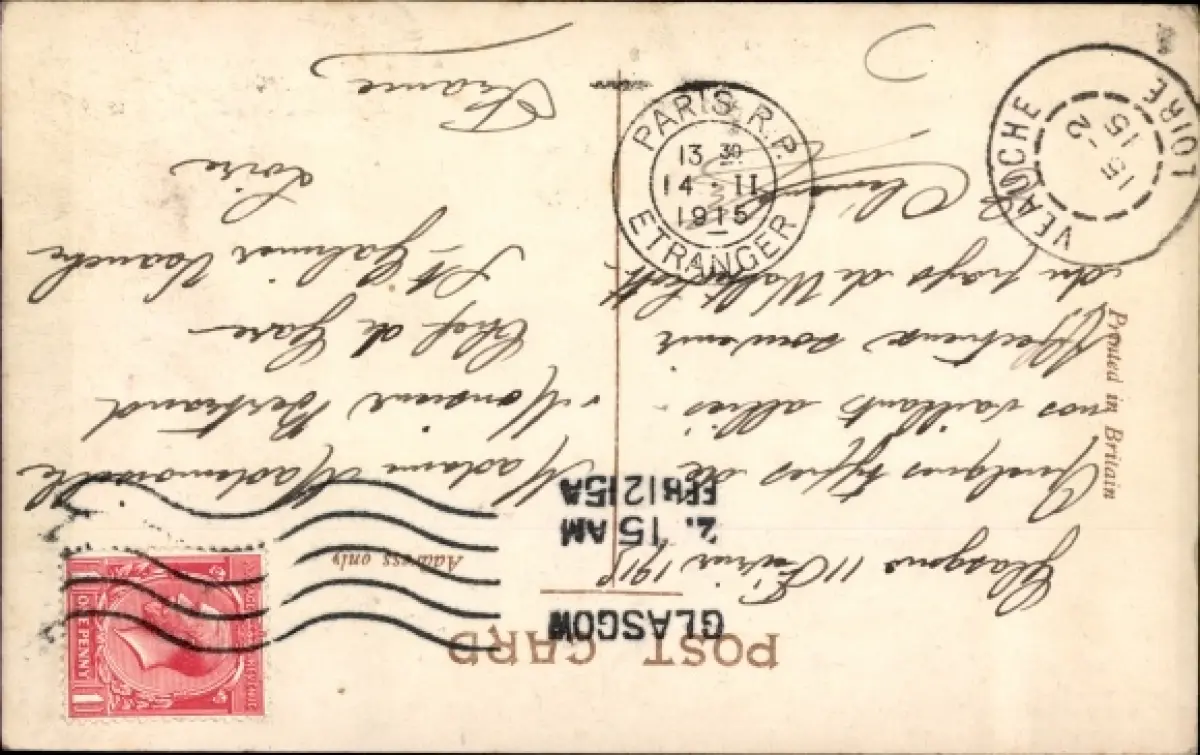 POST CARD
GLASGOW
2. 15 AM
FEB 12 15A
Address only
Printed in Britain
ONE PENNY
Glasgow 11 Février 1915
Quelques types de
nos vaillants alliés -
Affectueux souvenir
du pays de Walter Scott
Madame Mademoiselle
Monsieur Bertrand
Chef de Gare
St Galmier Veauche
Loire
France
PARIS R.P.
13 30
14 - II
1915
ETRANGER
VEAUCHE
15 - 2
15
LOIRE